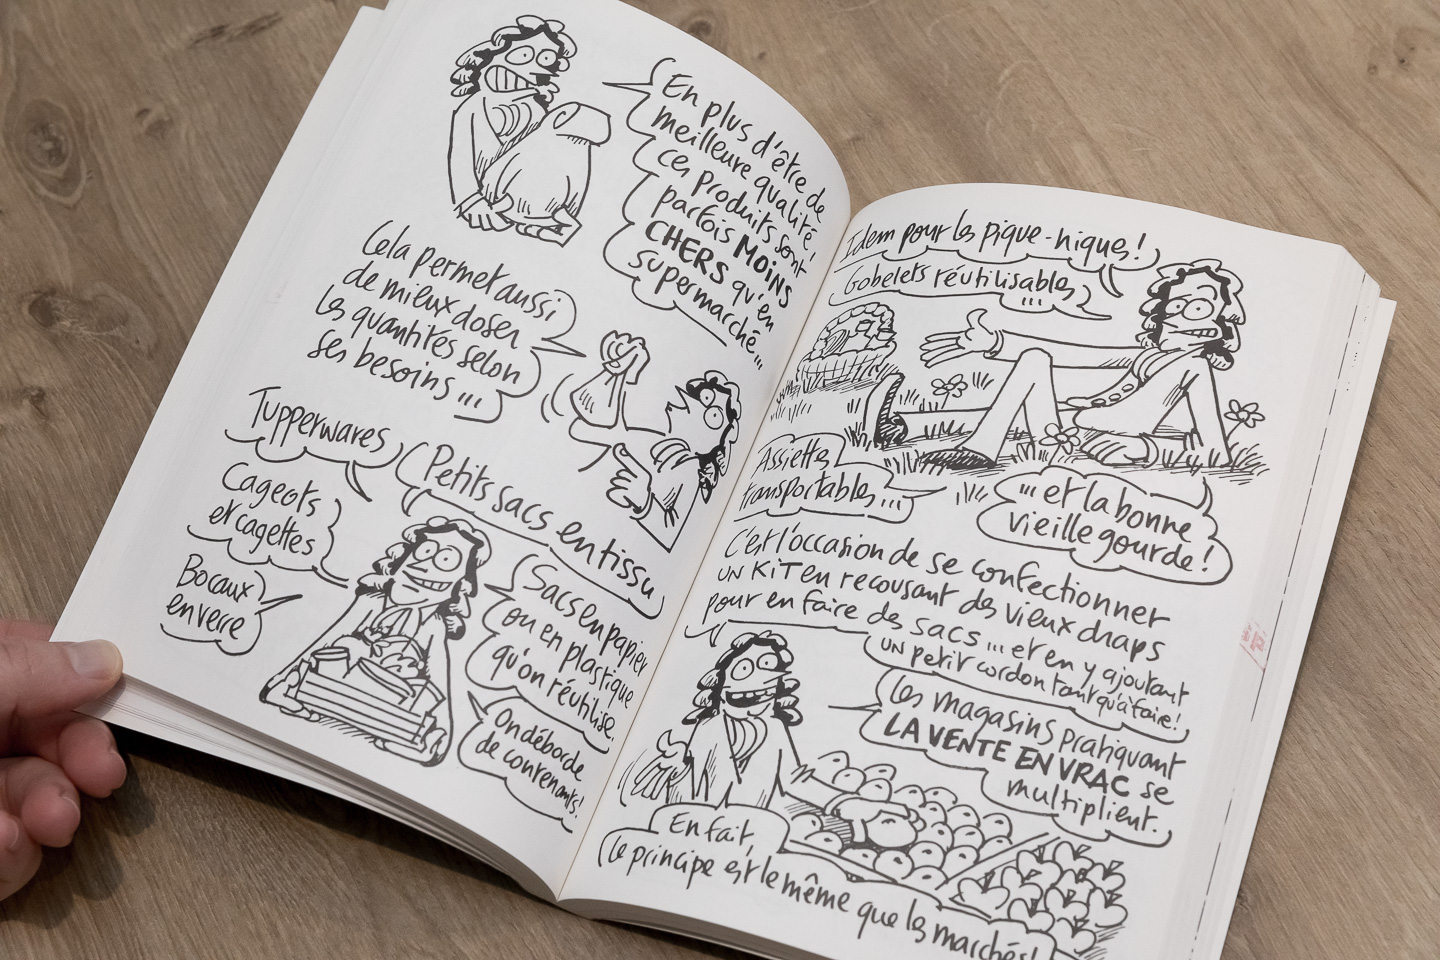 En plus d'être de
meilleure qualité
ces produits sont
parfois MOINS
CHERS qu'en
supermarché...
Cela permet aussi
de mieux doser
les quantités selon
ses besoins ...
Tupperwares
Petits sacs en tissu
Cageots
et cagettes
Bocaux
en verre
Sacs en papier
ou en plastique
qu'on réutilise.
On déborde
de contenants!
Idem pour les pique-niques!
Gobelets réutilisables
...
Assiettes
transportables...
... et la bonne
vieille gourde!
C'est l'occasion de se confectionner
UN KIT en recousant des vieux draps
pour en faire des sacs ... et en y ajoutant
un petit cordon tant qu'à faire!
Les magasins pratiquant
LA VENTE EN VRAC se
multiplient.
En fait,
le principe est le même que les marchés!